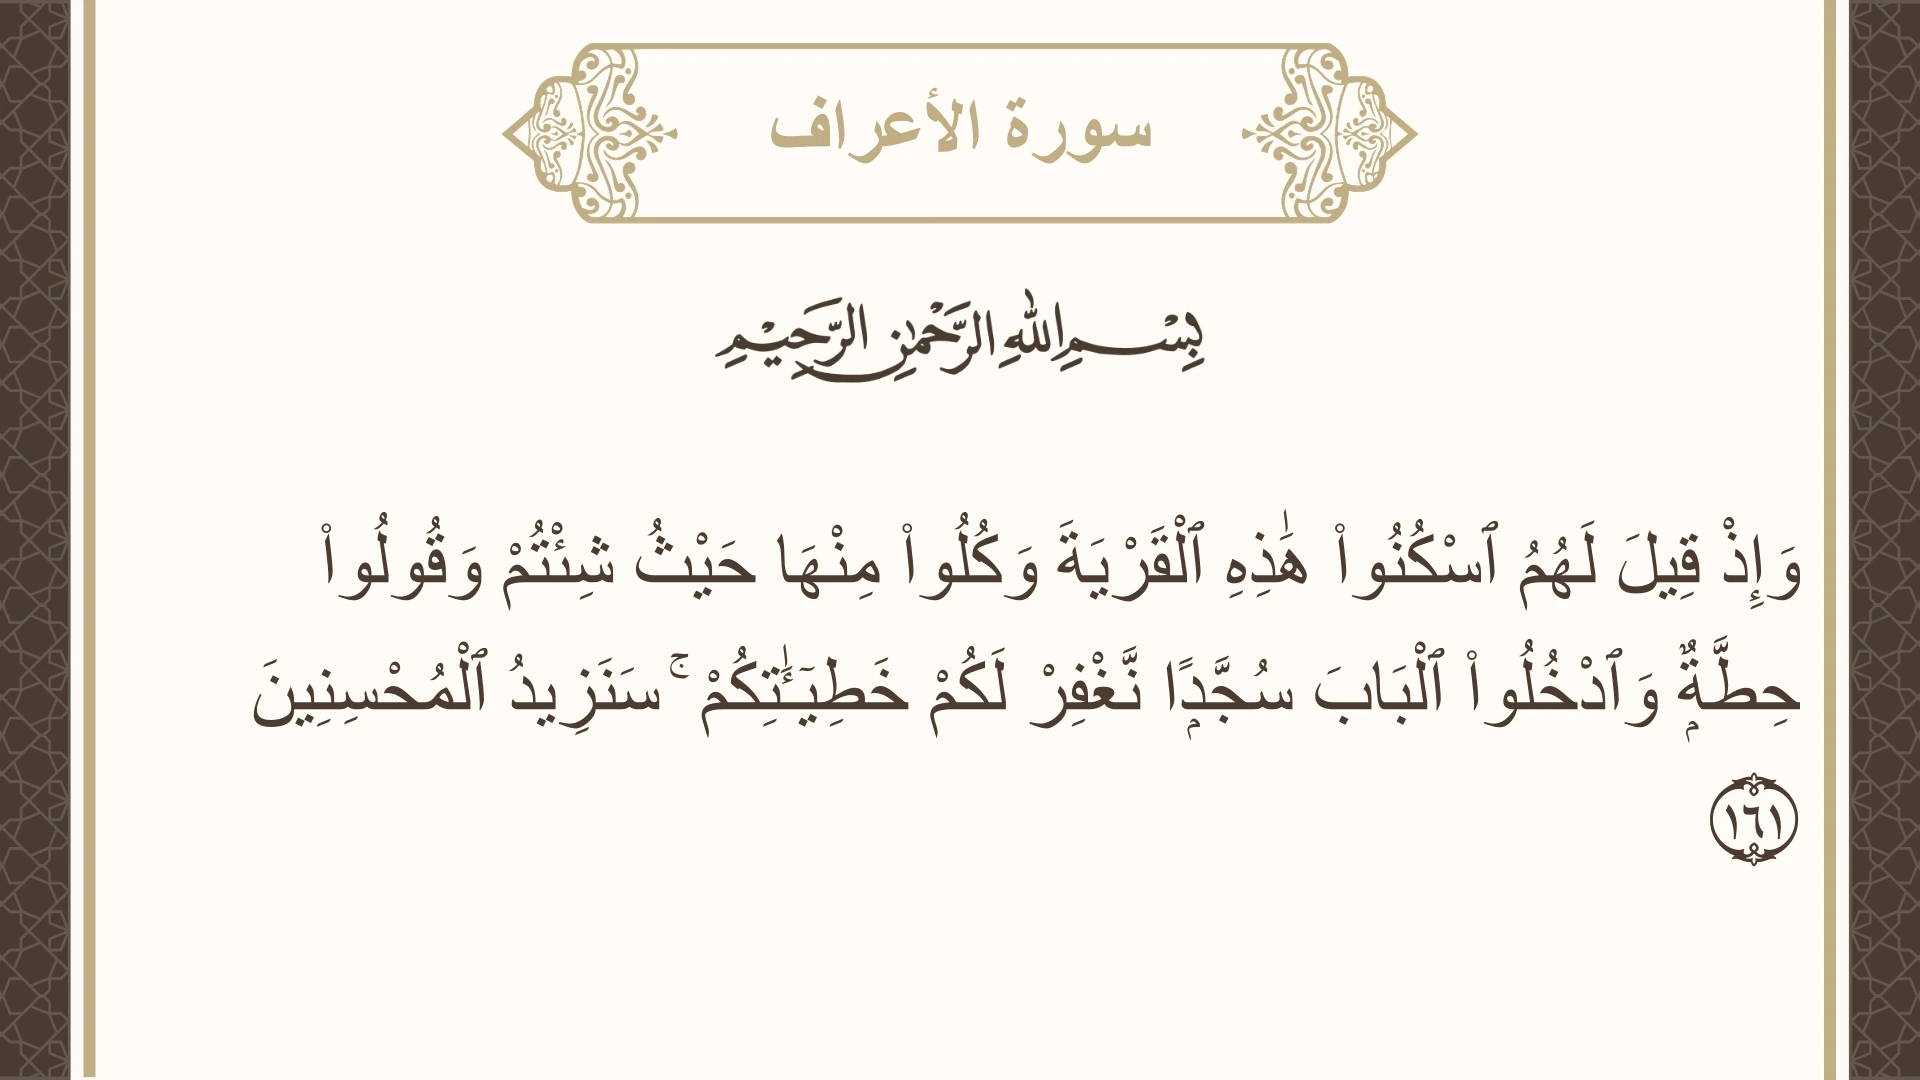 سورة الأعراف
بِسْمِ اللهِ الرَّحْمٰنِ الرَّحِيْمِ
وَإِذْ قِيلَ لَهُمُ ٱسْكُنُوا۟ هَٰذِهِ ٱلْقَرْيَةَ وَكُلُوا۟ مِنْهَا حَيْثُ شِئْتُمْ وَقُولُوا۟
حِطَّةٌۭ وَٱدْخُلُوا۟ ٱلْبَابَ سُجَّدًۭا نَّغْفِرْ لَكُمْ خَطِيٓـَٔـٰتِكُمْ ۚ سَنَزِيدُ ٱلْمُحْسِنِينَ
١٦١